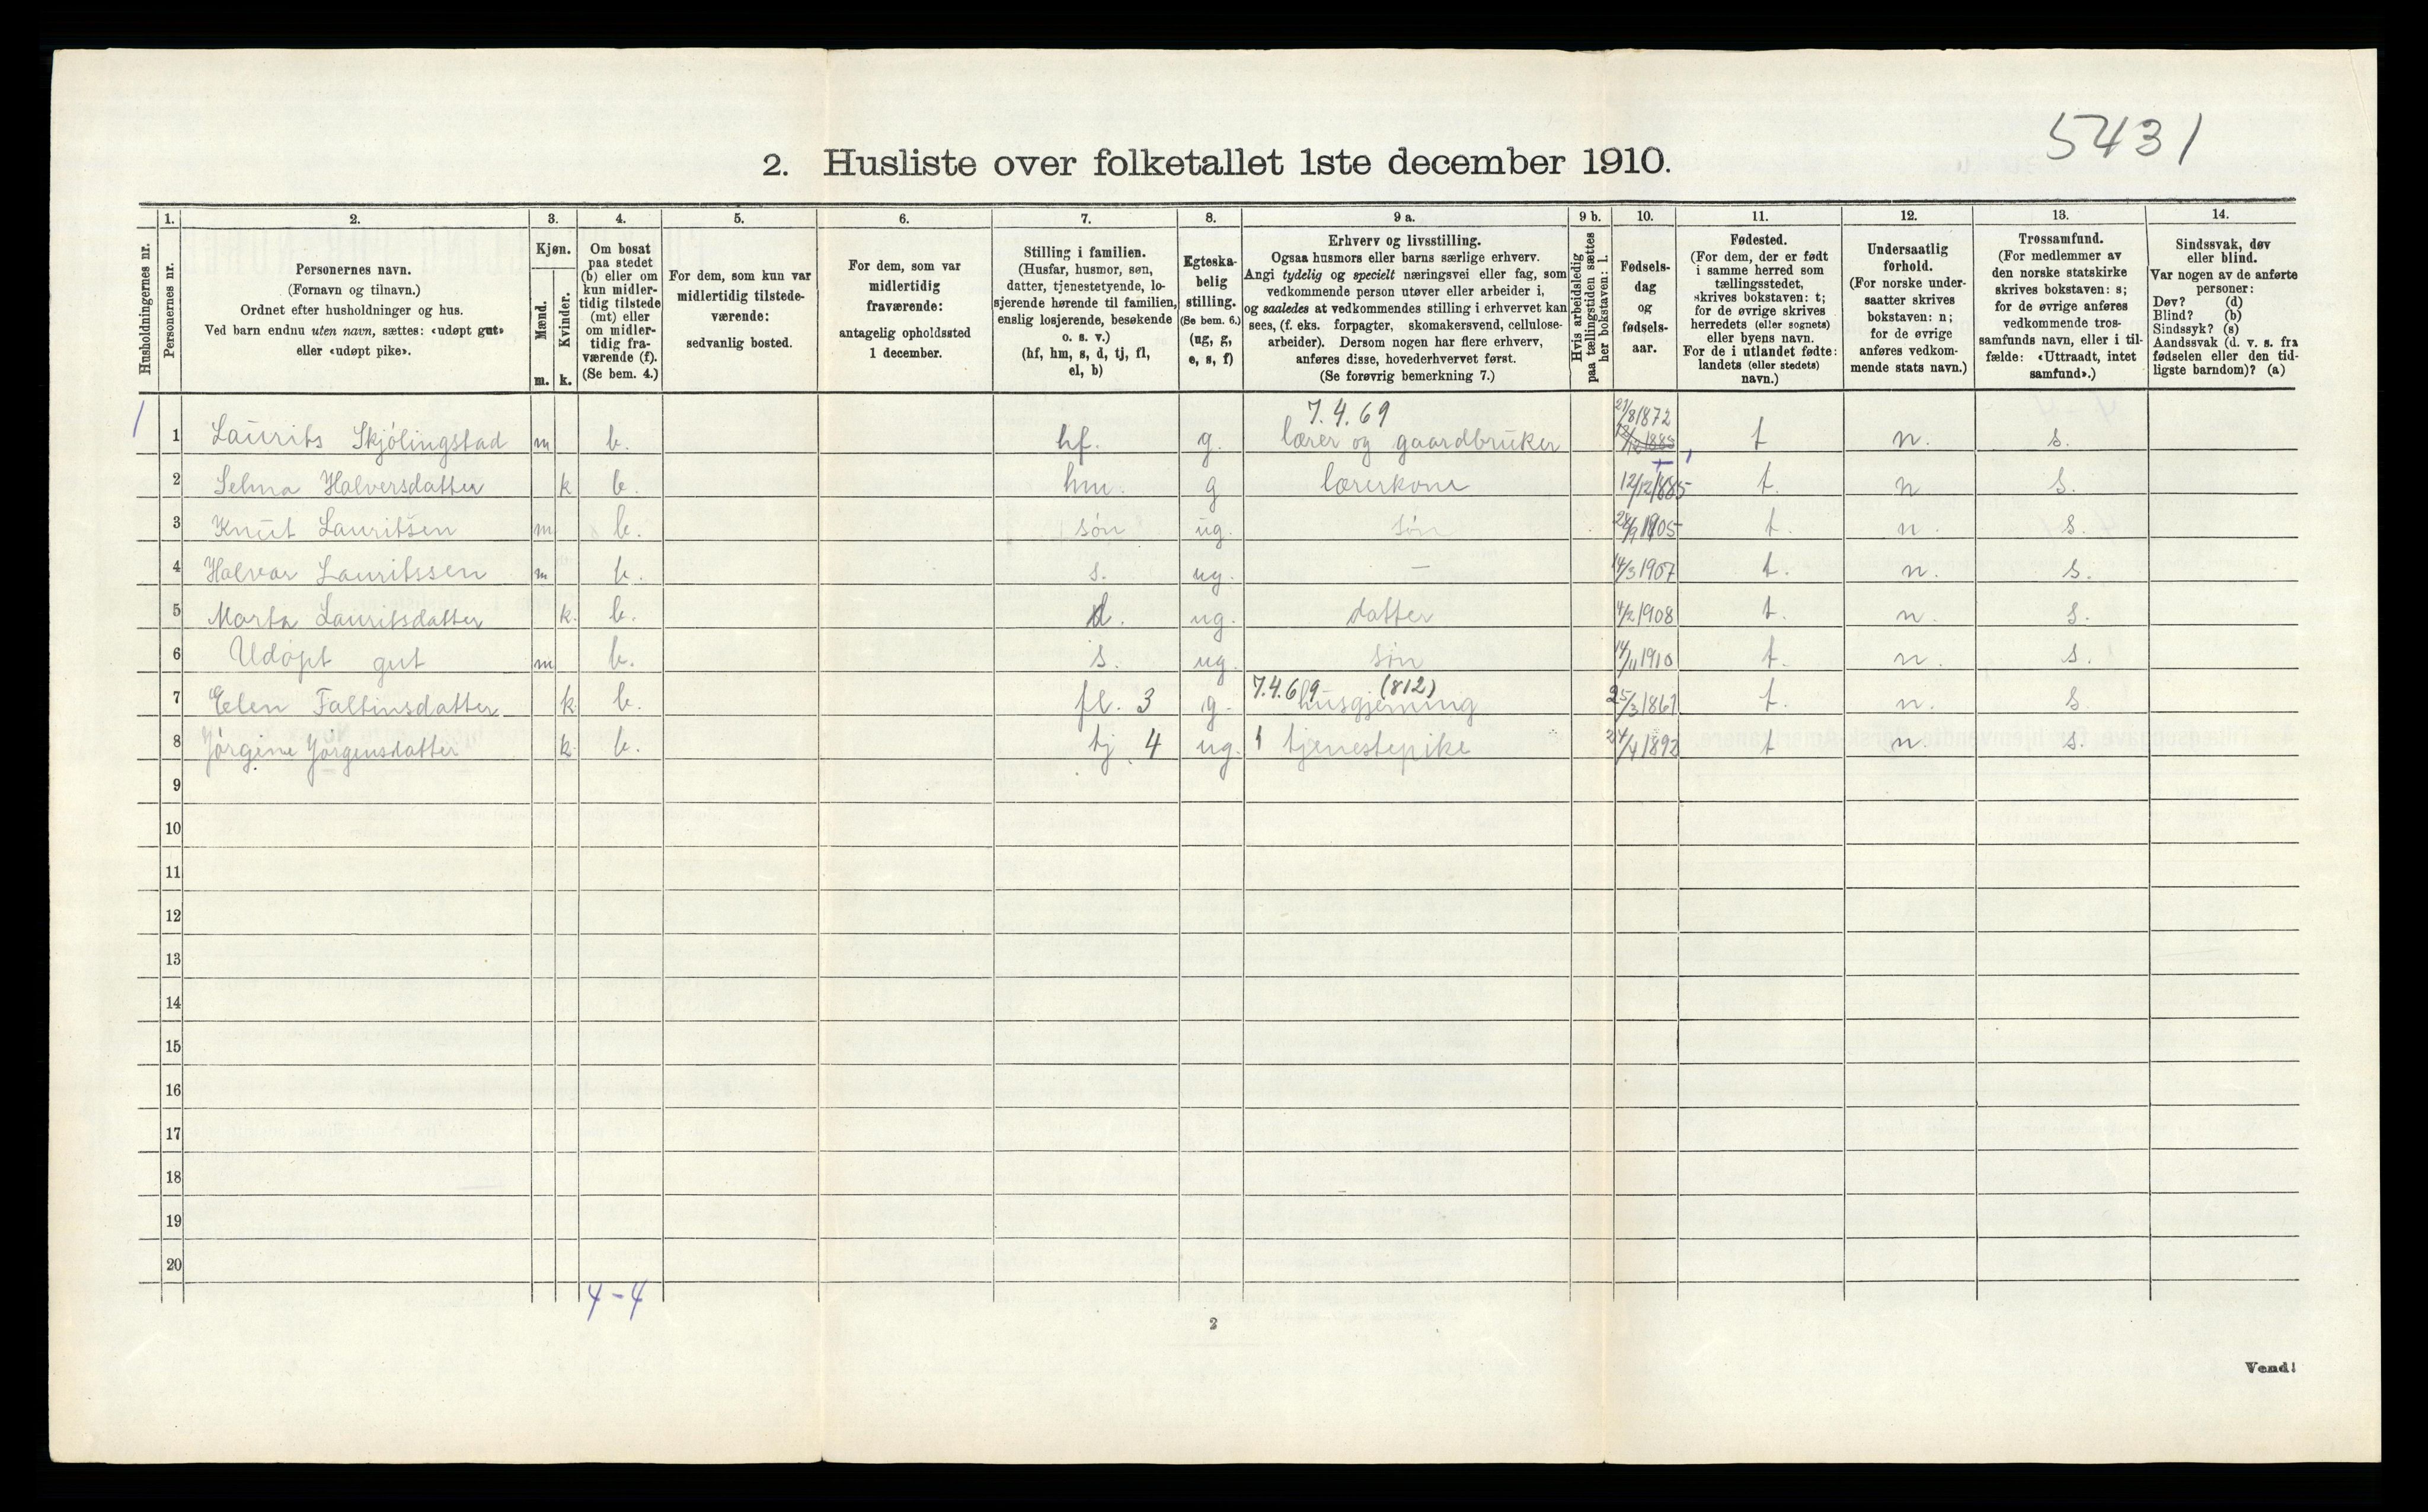 5431
2. Husliste over folketallet 1ste december 1910.
Husholdningernes nr.
1.
Personernes nr.
2.
Personernes navn.
(Fornavn og tilnavn.)
Ordnet efter husholdninger og hus.
Ved barn endnu uten navn, sættes: «udøpt gut»
eller «udøpt pike».
3.
Kjøn.
Mænd.
m.
Kvinder.
k.
4.
Om bosat
paa stedet
(b) eller om
kun midler-
tidig tilstede
(mt) eller
om midler-
tidig fra-
værende (f).
(Se bem. 4.)
5.
For dem, som kun var
midlertidig tilstede-
værende:
sedvanlig bosted.
6.
For dem, som var
midlertidig
fraværende:
antagelig opholdssted
1 december.
7.
Stilling i familien.
(Husfar, husmor, søn,
datter, tjenestetyende, lo-
sjerende hørende til familien,
enslig losjerende, besøkende
o. s. v.)
(hf, hm, s, d, tj, fl,
el, b)
8.
Egteska-
belig
stilling.
(Se bem. 6.)
(ug, g,
e, s, f)
9 a.
Erhverv og livsstilling.
Ogsaa husmors eller barns særlige erhverv.
Angi tydelig og specielt næringsvei eller fag, som
vedkommende person utøver eller arbeider i,
og saaledes at vedkommendes stilling i erhvervet kan
sees, (f. eks. forpagter, skomakersvend, cellulose-
arbeider). Dersom nogen har flere erhverv,
anføres disse, hovederhvervet først.
(Se forøvrig bemerkning 7.)
9 b.
Hvis arbeidsledig
paa tællingstiden sættes
her bokstaven: l.
10.
Fødsels-
dag
og
fødsels-
aar.
11.
Fødested.
(For dem, der er født
i samme herred som
tællingsstedet,
skrives bokstaven: t;
for de øvrige skrives
herredets (eller sognets)
eller byens navn.
For de i utlandet fødte:
landets (eller stedets)
navn.)
12.
Undersaatlig
forhold.
(For norske under-
saatter skrives
bokstaven: n;
for de øvrige
anføres vedkom-
mende stats navn.)
13.
Trossamfund.
(For medlemmer av
den norske statskirke
skrives bokstaven: s;
for de øvrige anføres
vedkommende tros-
samfunds navn, eller i til-
fælde: «Uttraadt, intet
samfund».)
14.
Sindssvak, døv
eller blind.
Var nogen av de anførte
personer:
Døv? (d)
Blind? (b)
Sindssyk? (s)
Aandssvak (d. v. s. fra
fødselen eller den tid-
ligste barndom)? (a)
7.4.69 21/8 1872
1 1 Laurits Skjölingstad m b. hf. g. lærer og gaardbruker 12/12 1885 t n. s.
2 Selma Halversdatter k b. hm. g lærerkone 12/12 1885 t. n s.
3 Knut Lauritsen m b. sön ug. sön 28/9 1905 t. n. s.
4 Halvar Lauritssen m b. s. ug. — 14/3 1907 t. n. s.
5 Marta Lauritsdatter k. b. d. ug. datter 4/2 1908 t. n. s.
6 Udøpt gut m b. s. ug. sön 14/11 1910 t. n. s.
7.4.69 (812)
7 Elen Faltinsdatter k b. fl. 3 g. husgjerning 25/3 1861 t. n. s.
8 Jörgine Jörgensdatter k. b. tj. 4 ug. tjenestepike 24/4 1892 t n. s.
9
10
11
12
13
14
15
16
17
18
19
20
4-4
2
Vend!